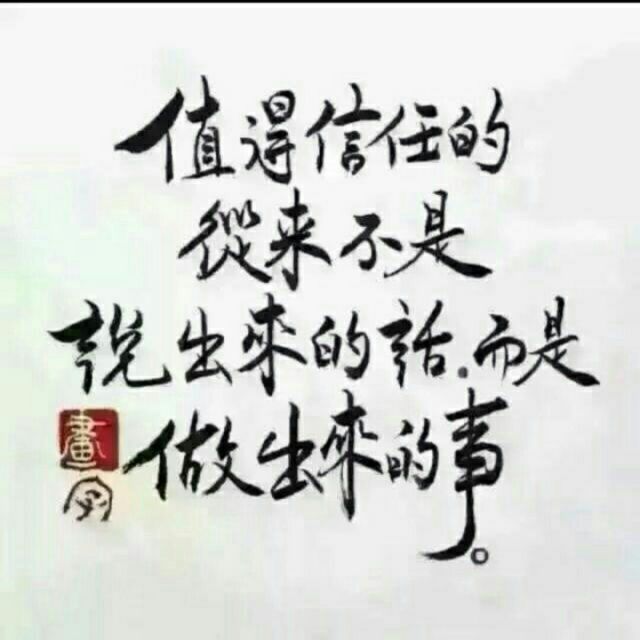 值得信任的
從来不是
說出來的話.而是
做出來的事。
畫